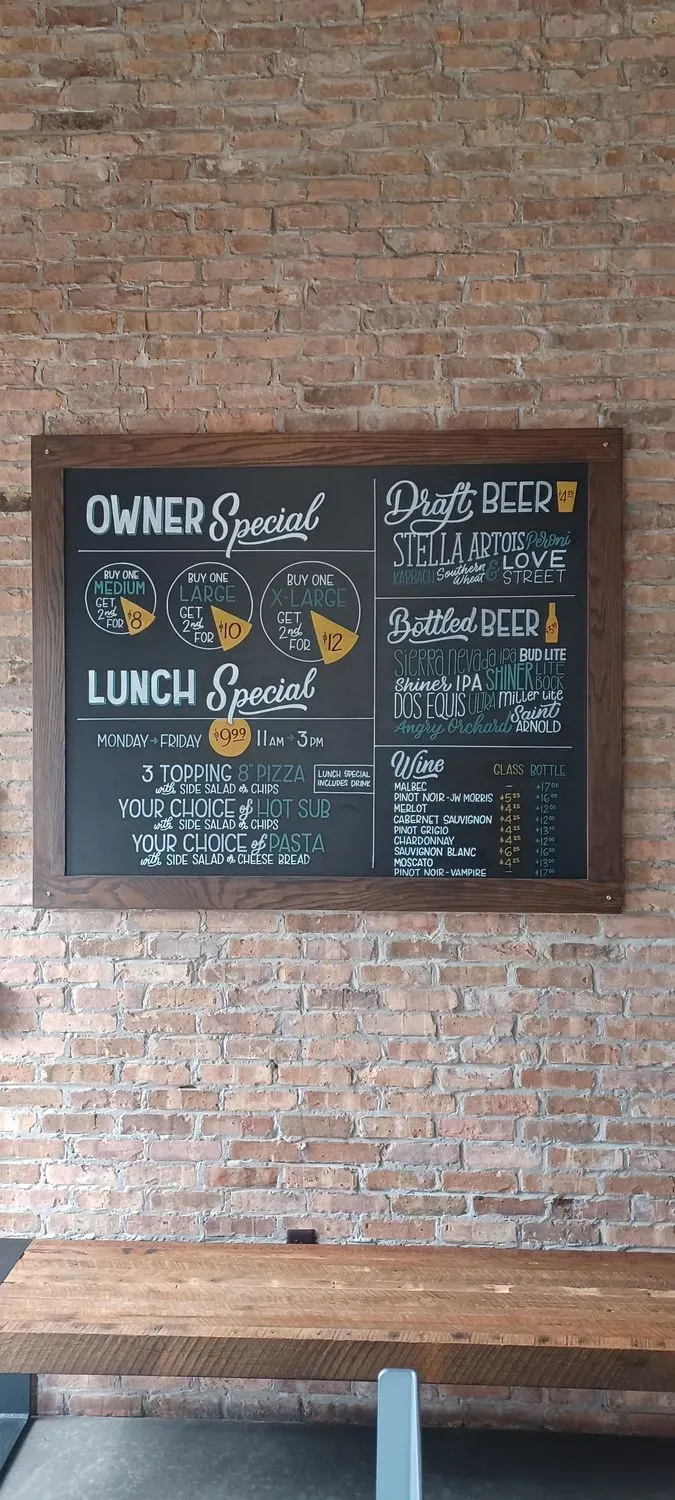 OWNER Special
BUY ONE
MEDIUM
GET
2nd
FOR $8
BUY ONE
LARGE
GET
2nd
FOR $10
BUY ONE
X-LARGE
GET
2nd
FOR $12
LUNCH Special
MONDAY → FRIDAY $9.99 11AM → 3PM
3 TOPPING 8" PIZZA
with SIDE SALAD or CHIPS
LUNCH SPECIAL
INCLUDES DRINK
YOUR CHOICE of HOT SUB
with SIDE SALAD or CHIPS
YOUR CHOICE of PASTA
with SIDE SALAD or CHEESE BREAD
Draft BEER $4.25
STELLA ARTOIS Peroni
KARBACH Southern Wheat & LOVE STREET
Bottled BEER
Sierra Nevada IPA BUD LITE
Shiner IPA SHINER LITE BOCK
DOS EQUIS ULTRA Miller Lite
Angry Orchard Saint ARNOLD
Wine GLASS BOTTLE
MALBEC — $17.00
PINOT NOIR - JW MORRIS $5.25 $16.00
MERLOT $4.25 $12.00
CABERNET SAUVIGNON $4.25 $12.00
PINOT GRIGIO $4.25 $13.00
CHARDONNAY $4.25 $12.00
SAUVIGNON BLANC $6.25 $16.00
MOSCATO $4.25 $13.00
PINOT NOIR - VAMPIRE — $17.00